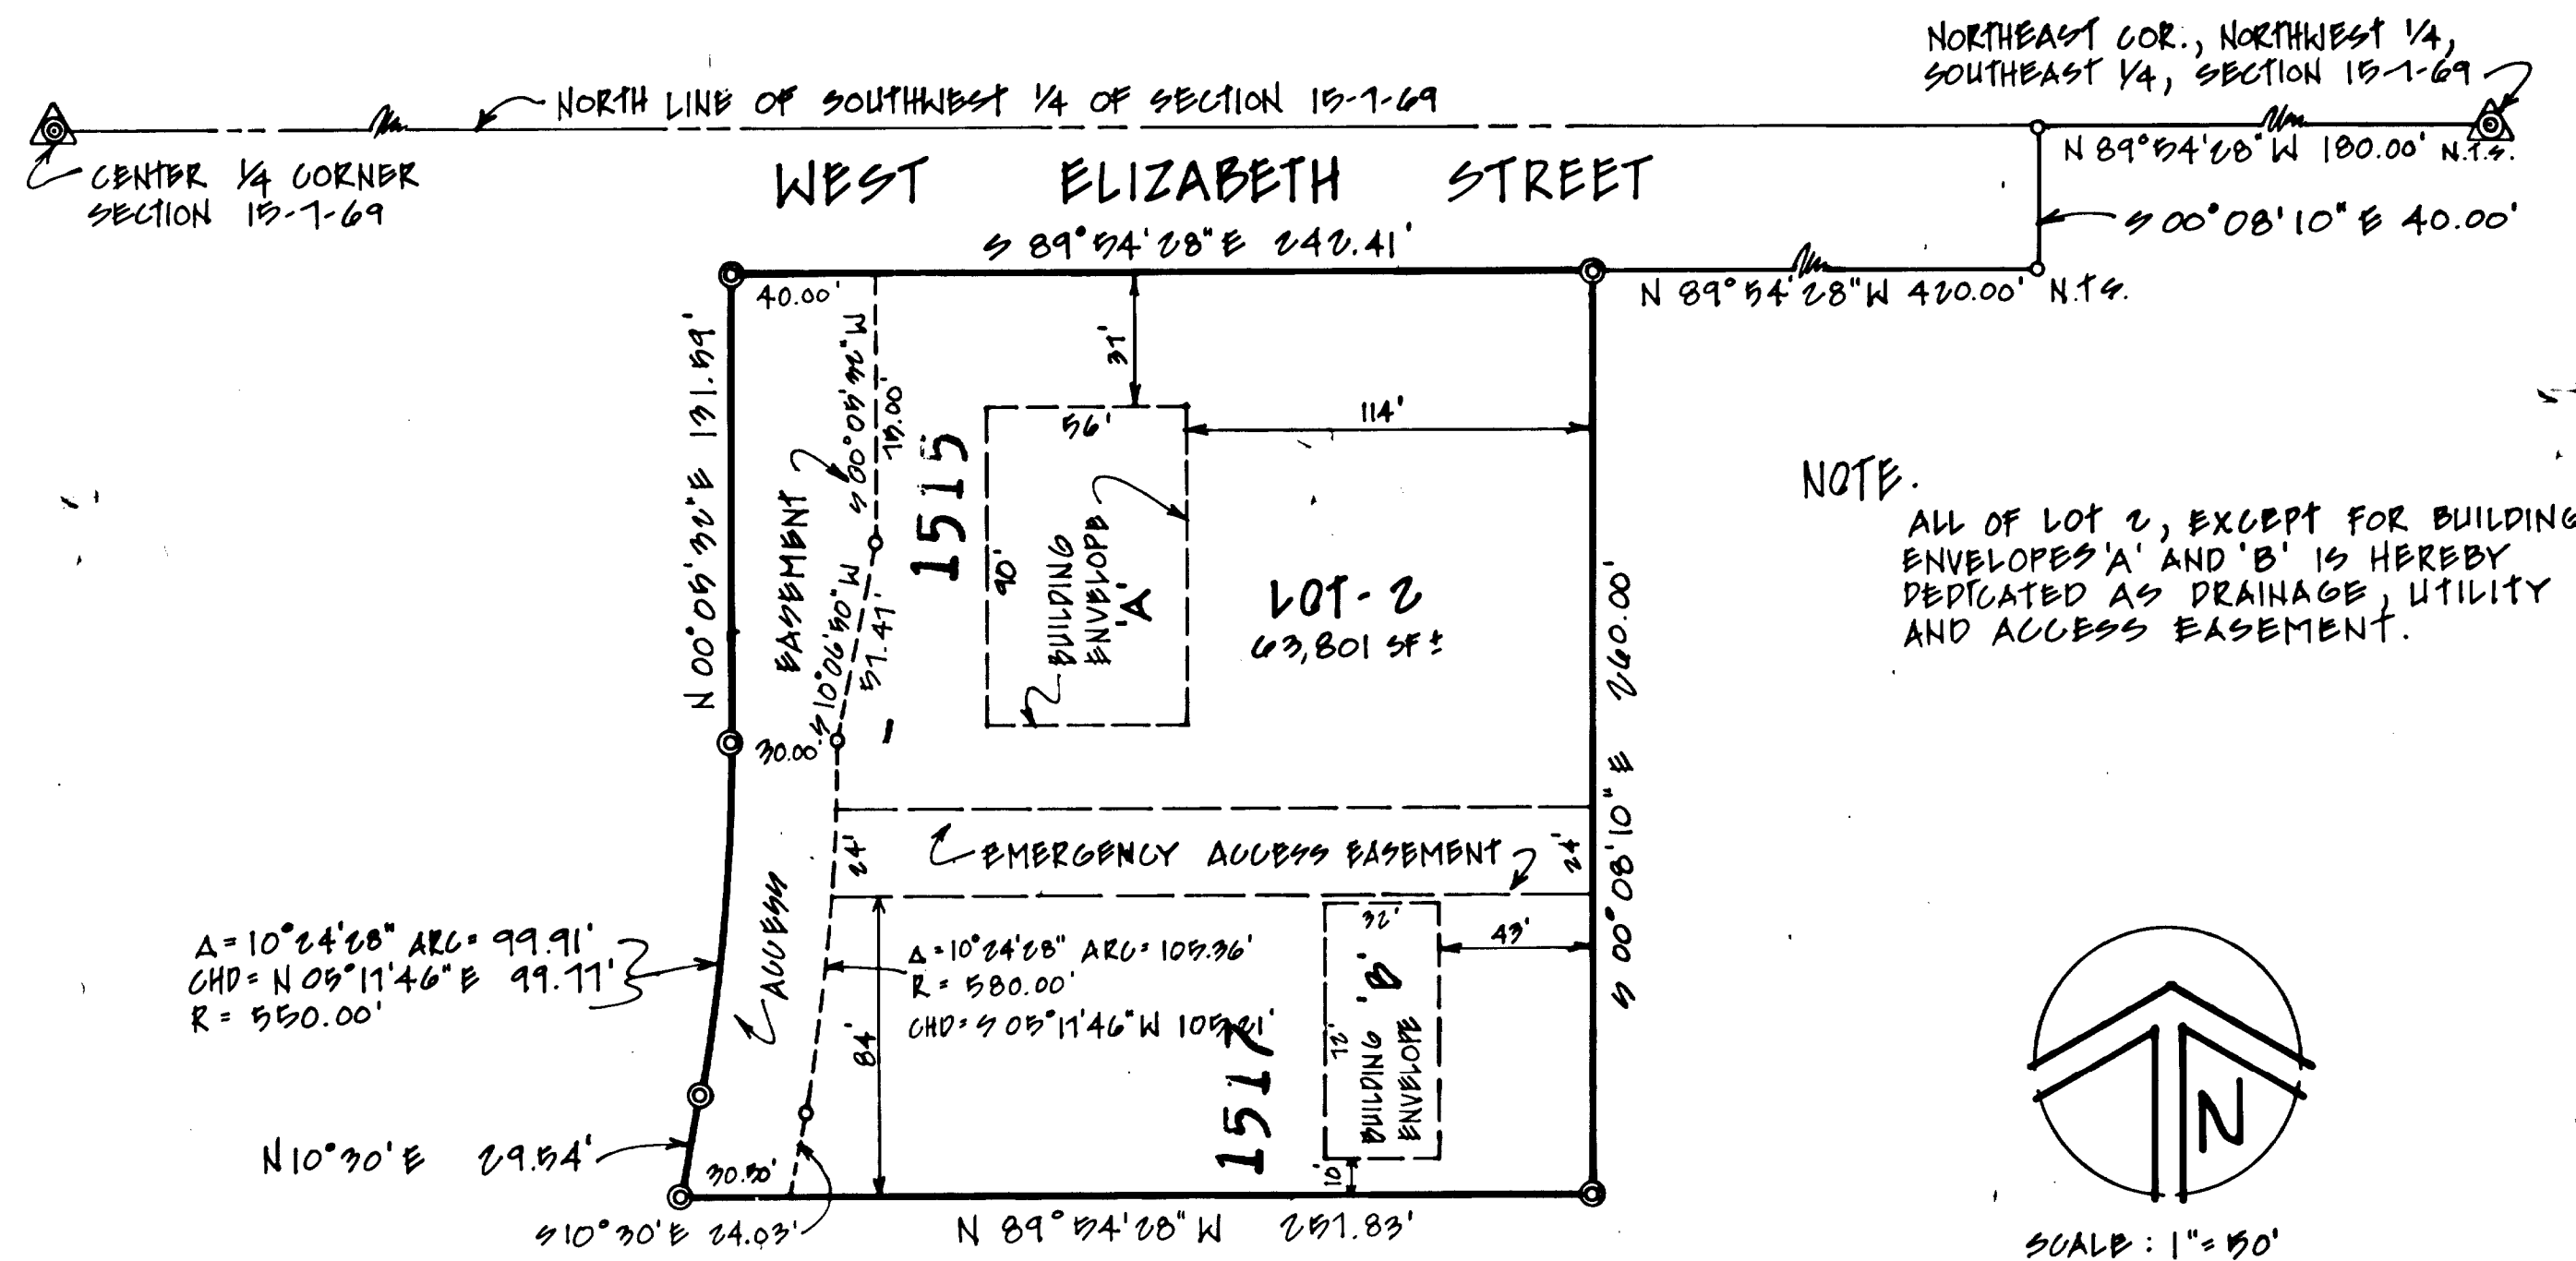 NORTHEAST COR., NORTHWEST 1/4,
SOUTHEAST 1/4, SECTION 15-7-69
NORTH LINE OF SOUTHWEST 1/4 OF SECTION 15-7-69
CENTER 1/4 CORNER
SECTION 15-7-69
N 89°54'28"W 180.00' N.T.S.
WEST ELIZABETH STREET
S 00°08'10"E 40.00'
S 89°54'28"E 242.41'
N 89°54'28"W 420.00' N.T.S.
40.00'
N 00°05'32"E 131.59'
S 00°05'32"W
75.00'
EASEMENT
S 10°06'50"W
57.47'
30.00'
1515
37'
114'
56'
90'
BUILDING
ENVELOPE
'A'
LOT-2
63,801 SF±
S 00°08'10"E 260.00'
NOTE.
ALL OF LOT 2, EXCEPT FOR BUILDING
ENVELOPES 'A' AND 'B' IS HEREBY
DEDICATED AS DRAINAGE, UTILITY
AND ACCESS EASEMENT.
24'
EMERGENCY ACCESS EASEMENT
24'
ACCESS
Δ=10°24'28" ARC= 99.91'
CHD= N 05°17'46"E 99.77'
R= 550.00'
Δ=10°24'28" ARC= 105.36'
R= 580.00'
CHD= S 05°17'46"W 105.21'
84'
1517
32'
43'
72'
'B'
BUILDING
ENVELOPE
10'
N 10°30'E 29.54'
30.50'
S 10°30'E 24.03'
N 89°54'28"W 257.83'
N
SCALE: 1"=50'